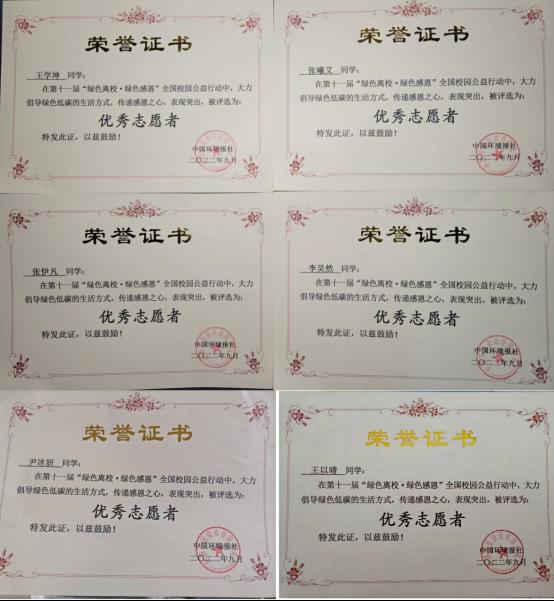 荣誉证书
王学坤 同学:
在第十一届“绿色离校·绿色感恩”全国校园公益行动中，大力
倡导绿色低碳的生活方式，传递感恩之心，表现突出，被评选为:
优秀志愿者
特发此证，以兹鼓励！
中国环境报社
二〇二二年九月
荣誉证书
张曦艾 同学:
在第十一届“绿色离校·绿色感恩”全国校园公益行动中，大力
倡导绿色低碳的生活方式，传递感恩之心，表现突出，被评选为:
优秀志愿者
特发此证，以兹鼓励！
中国环境报社
二〇二二年九月
荣誉证书
张伊凡 同学:
在第十一届“绿色离校·绿色感恩”全国校园公益行动中，大力
倡导绿色低碳的生活方式，传递感恩之心，表现突出，被评选为:
优秀志愿者
特发此证，以兹鼓励！
中国环境报社
二〇二二年九月
荣誉证书
李昊然 同学:
在第十一届“绿色离校·绿色感恩”全国校园公益行动中，大力
倡导绿色低碳的生活方式，传递感恩之心，表现突出，被评选为:
优秀志愿者
特发此证，以兹鼓励！
中国环境报社
二〇二二年九月
荣誉证书
尹冰妍 同学:
在第十一届“绿色离校·绿色感恩”全国校园公益行动中，大力
倡导绿色低碳的生活方式，传递感恩之心，表现突出，被评选为:
优秀志愿者
特发此证，以兹鼓励！
中国环境报社
二〇二二年九月
荣誉证书
王以晴 同学:
在第十一届“绿色离校·绿色感恩”全国校园公益行动中，大力
倡导绿色低碳的生活方式，传递感恩之心，表现突出，被评选为:
优秀志愿者
特发此证，以兹鼓励！
中国环境报社
二〇二二年九月